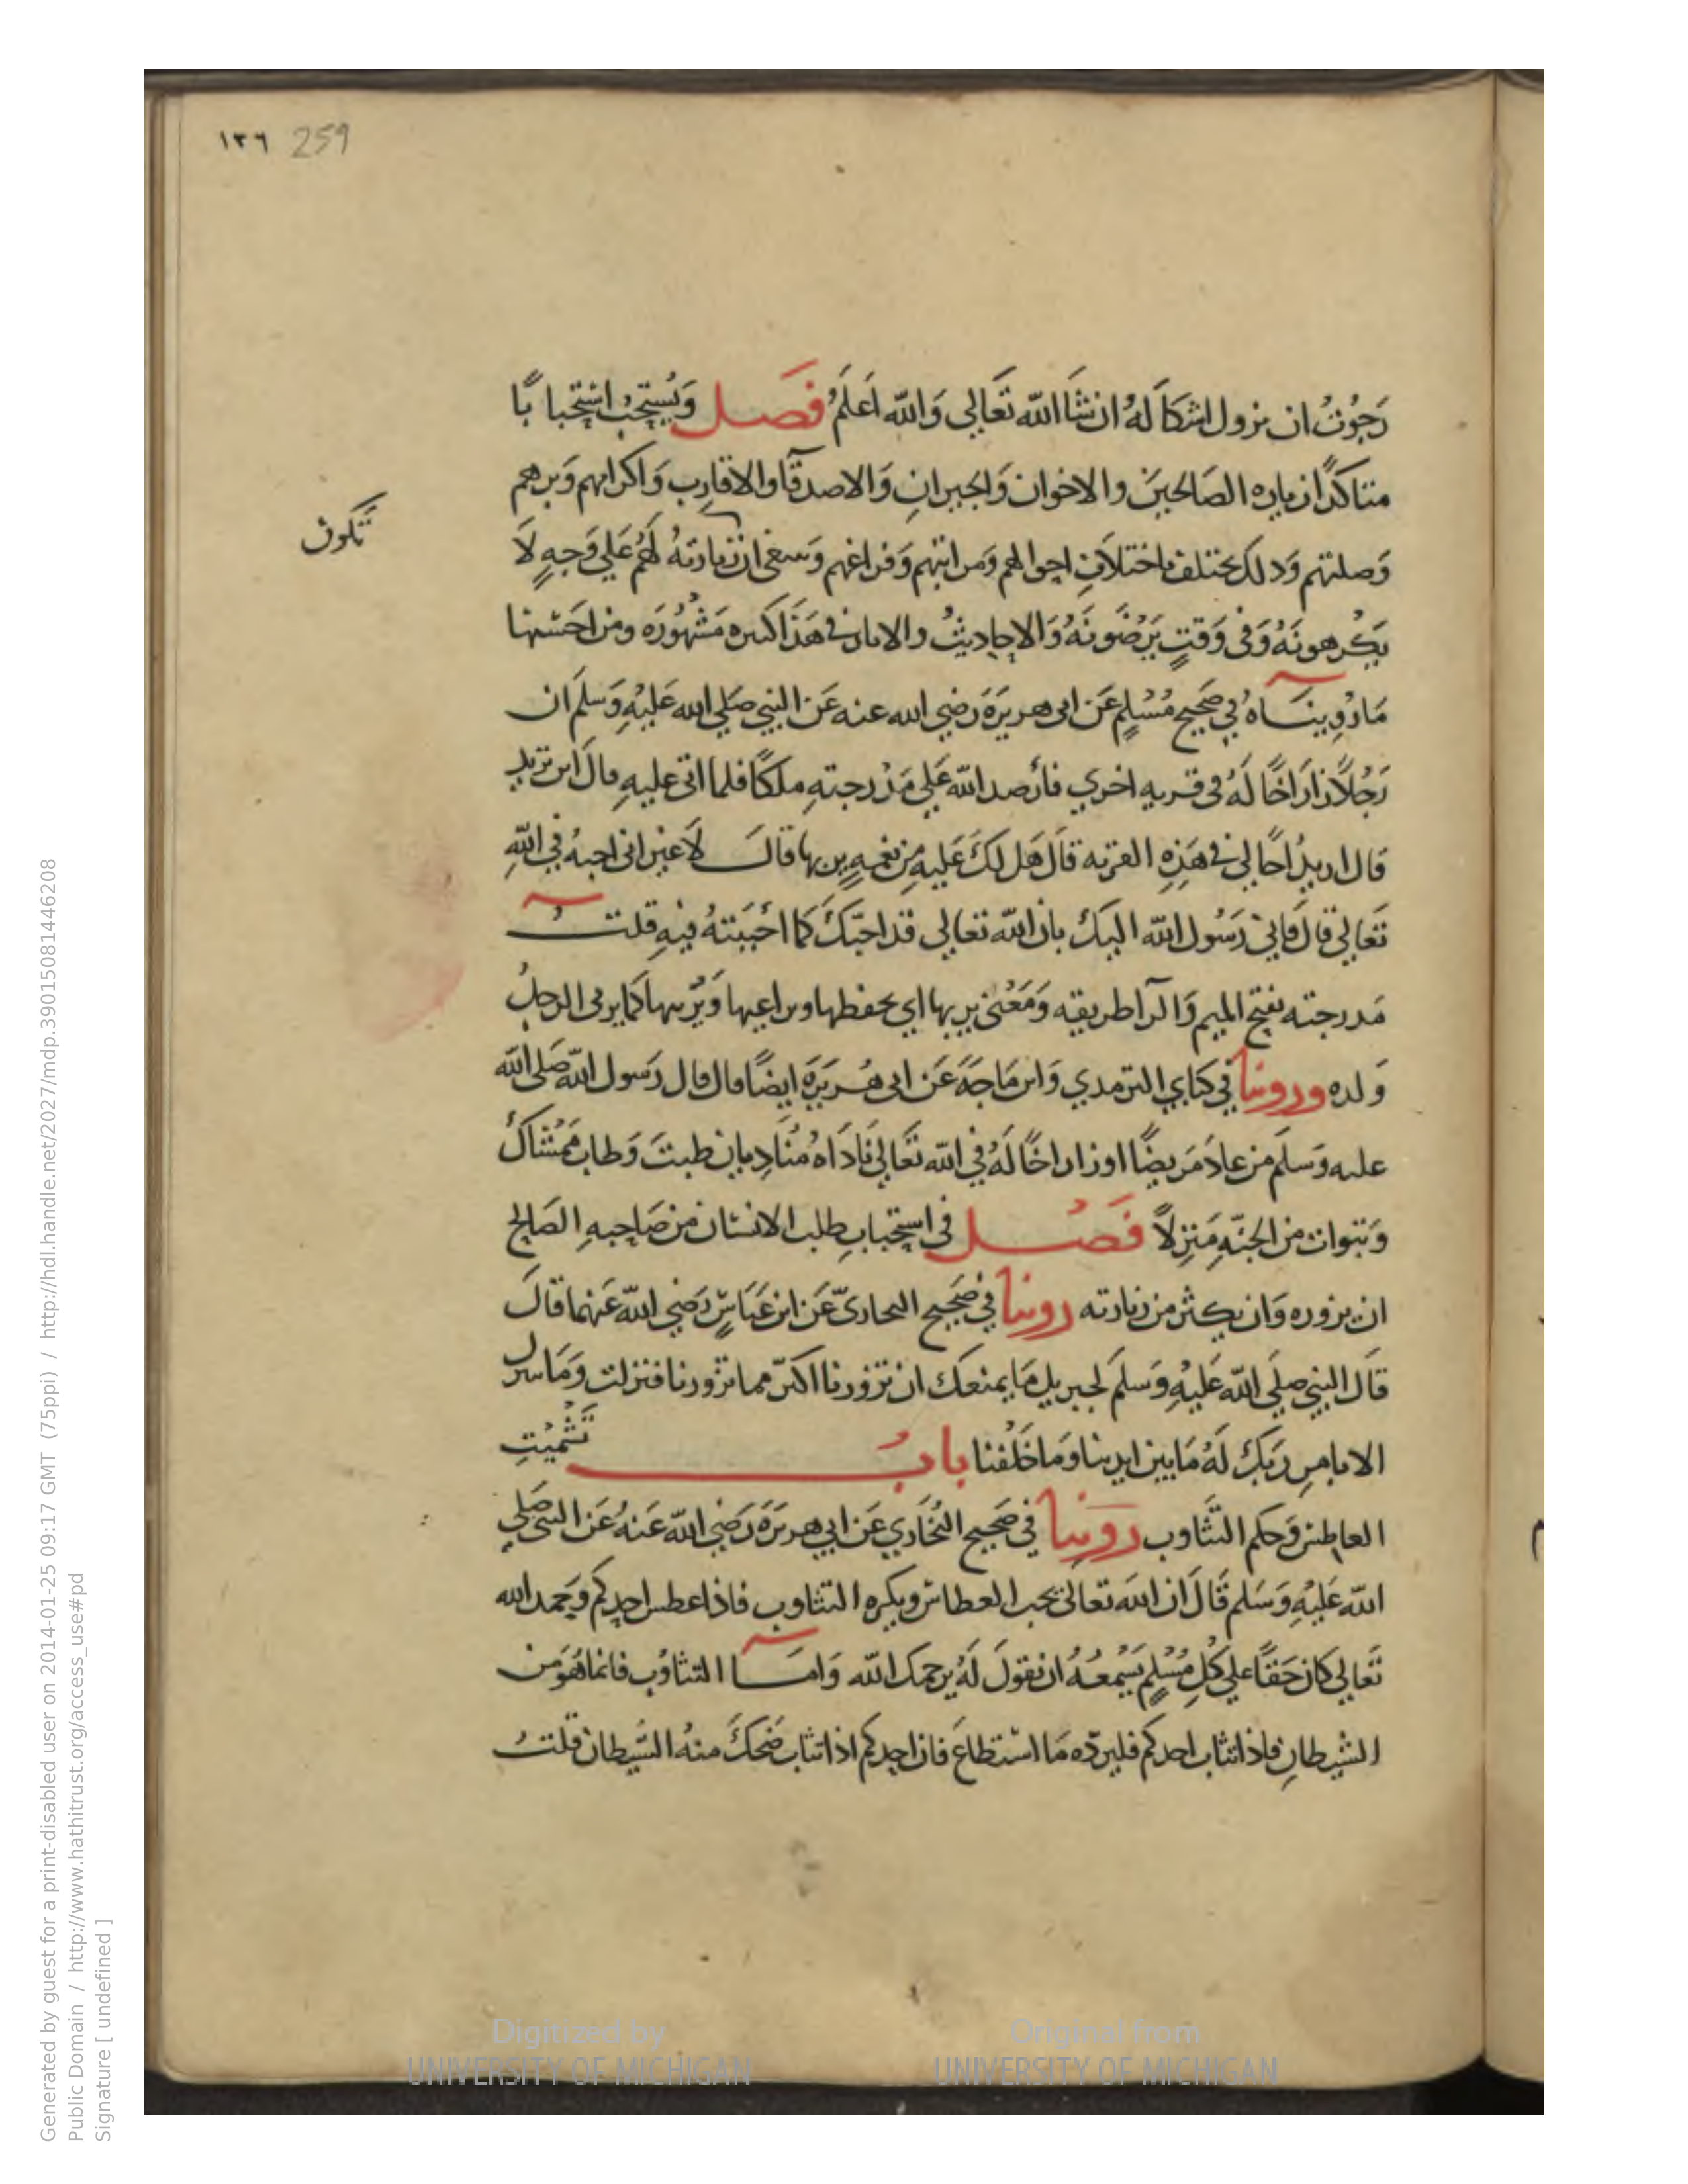 ١٣٦ 259
رَجَوْتُ ان يزول اشكاله ان شا الله تعالى والله اعلم فصل ويُستحب استحبابًا
متاكدًا زياره الصالحين والاخوان والجيران والاصدقا والاقارب واكرامهم وبرهم
وصلتهم وذلك يختلف باختلاف احوالهم ومراتبهم وفراغهم وينبغى ان زيارته لهم على وجهٍ لا
تكون
يكرهونه وفى وقتٍ يرضونه والاحاديث والاثار فى هذا كثيره مشهوره ومن احسنها
ما رويناه في صحيح مسلم عن ابى هريرة رضي الله عنه عن النبي صلي الله عليه وسلم ان
رجلاً زار اخًا له فى قريه اخري فأرصد الله علي مدرجته ملكًا فلما اتى عليه قال اين تريد
قال اريد اخًا لي فى هذه القريه قال هل لك عليه من نعمةٍ تربها قال لا غير انى احبه في الله
تعالي قال فاني رسول الله اليك بان الله تعالي قد احبّك كما احببته فيه قلت
مدرجته بفتح الميم والرا طريقه ومعنى تربها اي تحفظها وتراعيها وتُربيها كما يربى الرجل
ولده وروينا في كتابي الترمذي وابن ماجه عن ابى هريرة ايضًا قال قال رسول الله صلى الله
عليه وسلم من عاد مريضًا او زار اخًا له في الله تعالي ناداه منادٍ بان طبت وطاب ممشاك
وتبوات من الجنه منزلاً فصل فى استحباب طلب الانسان من صاحبه الصالح
ان يزوره وان يكثر من زيارته روينا في صحيح البخارى عن ابن عباسٍ رضي الله عنهما قال
قال النبي صلي الله عليه وسلم لجبريل ما يمنعك ان تزورنا اكثر مما تزورنا فنزلت وما نتنزل
الا بامر ربك له ما بين ايدينا وما خلفنا باب تشميت
العاطس وحكم التثاوب روينا في صحيح البُخاري عن ابي هريرة رضي الله عنه عن النبى صلي
الله عليه وسلم قال ان الله تعالى يحب العطاس ويكره التثاوب فاذا عطس احدكم وحمد الله
تعالي كان حقًا علي كل مسلم يسمعه ان يقول له يرحمك الله واما التثاوب فانما هو من
الشيطان فاذا تثاب احدكم فليردّه ما استطاع فان احدكم اذا تثاب ضحك منه الشيطان قلت
Generated by guest for a print-disabled user on 2014-01-25 09:17 GMT (75ppi) / http://hdl.handle.net/2027/mdp.39015081446208
Public Domain / http://www.hathitrust.org/access_use#pd
Signature [ undefined ]
Digitized by
UNIVERSITY OF MICHIGAN
Original from
UNIVERSITY OF MICHIGAN